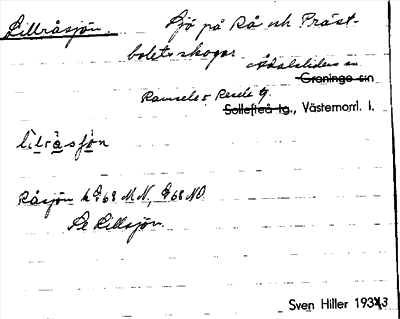 Lillråsjön. Sjö på Rå och Präst-
bolets skogar
Ådalslidens sn
Graninge sn
Ramsele o Resele tg.
Sollefteå tg., Västernorrl. l.
lìlråsjön
Råsjön k 68 M N, 68 NO.
Se Lillsjön.
Sven Hiller 1933